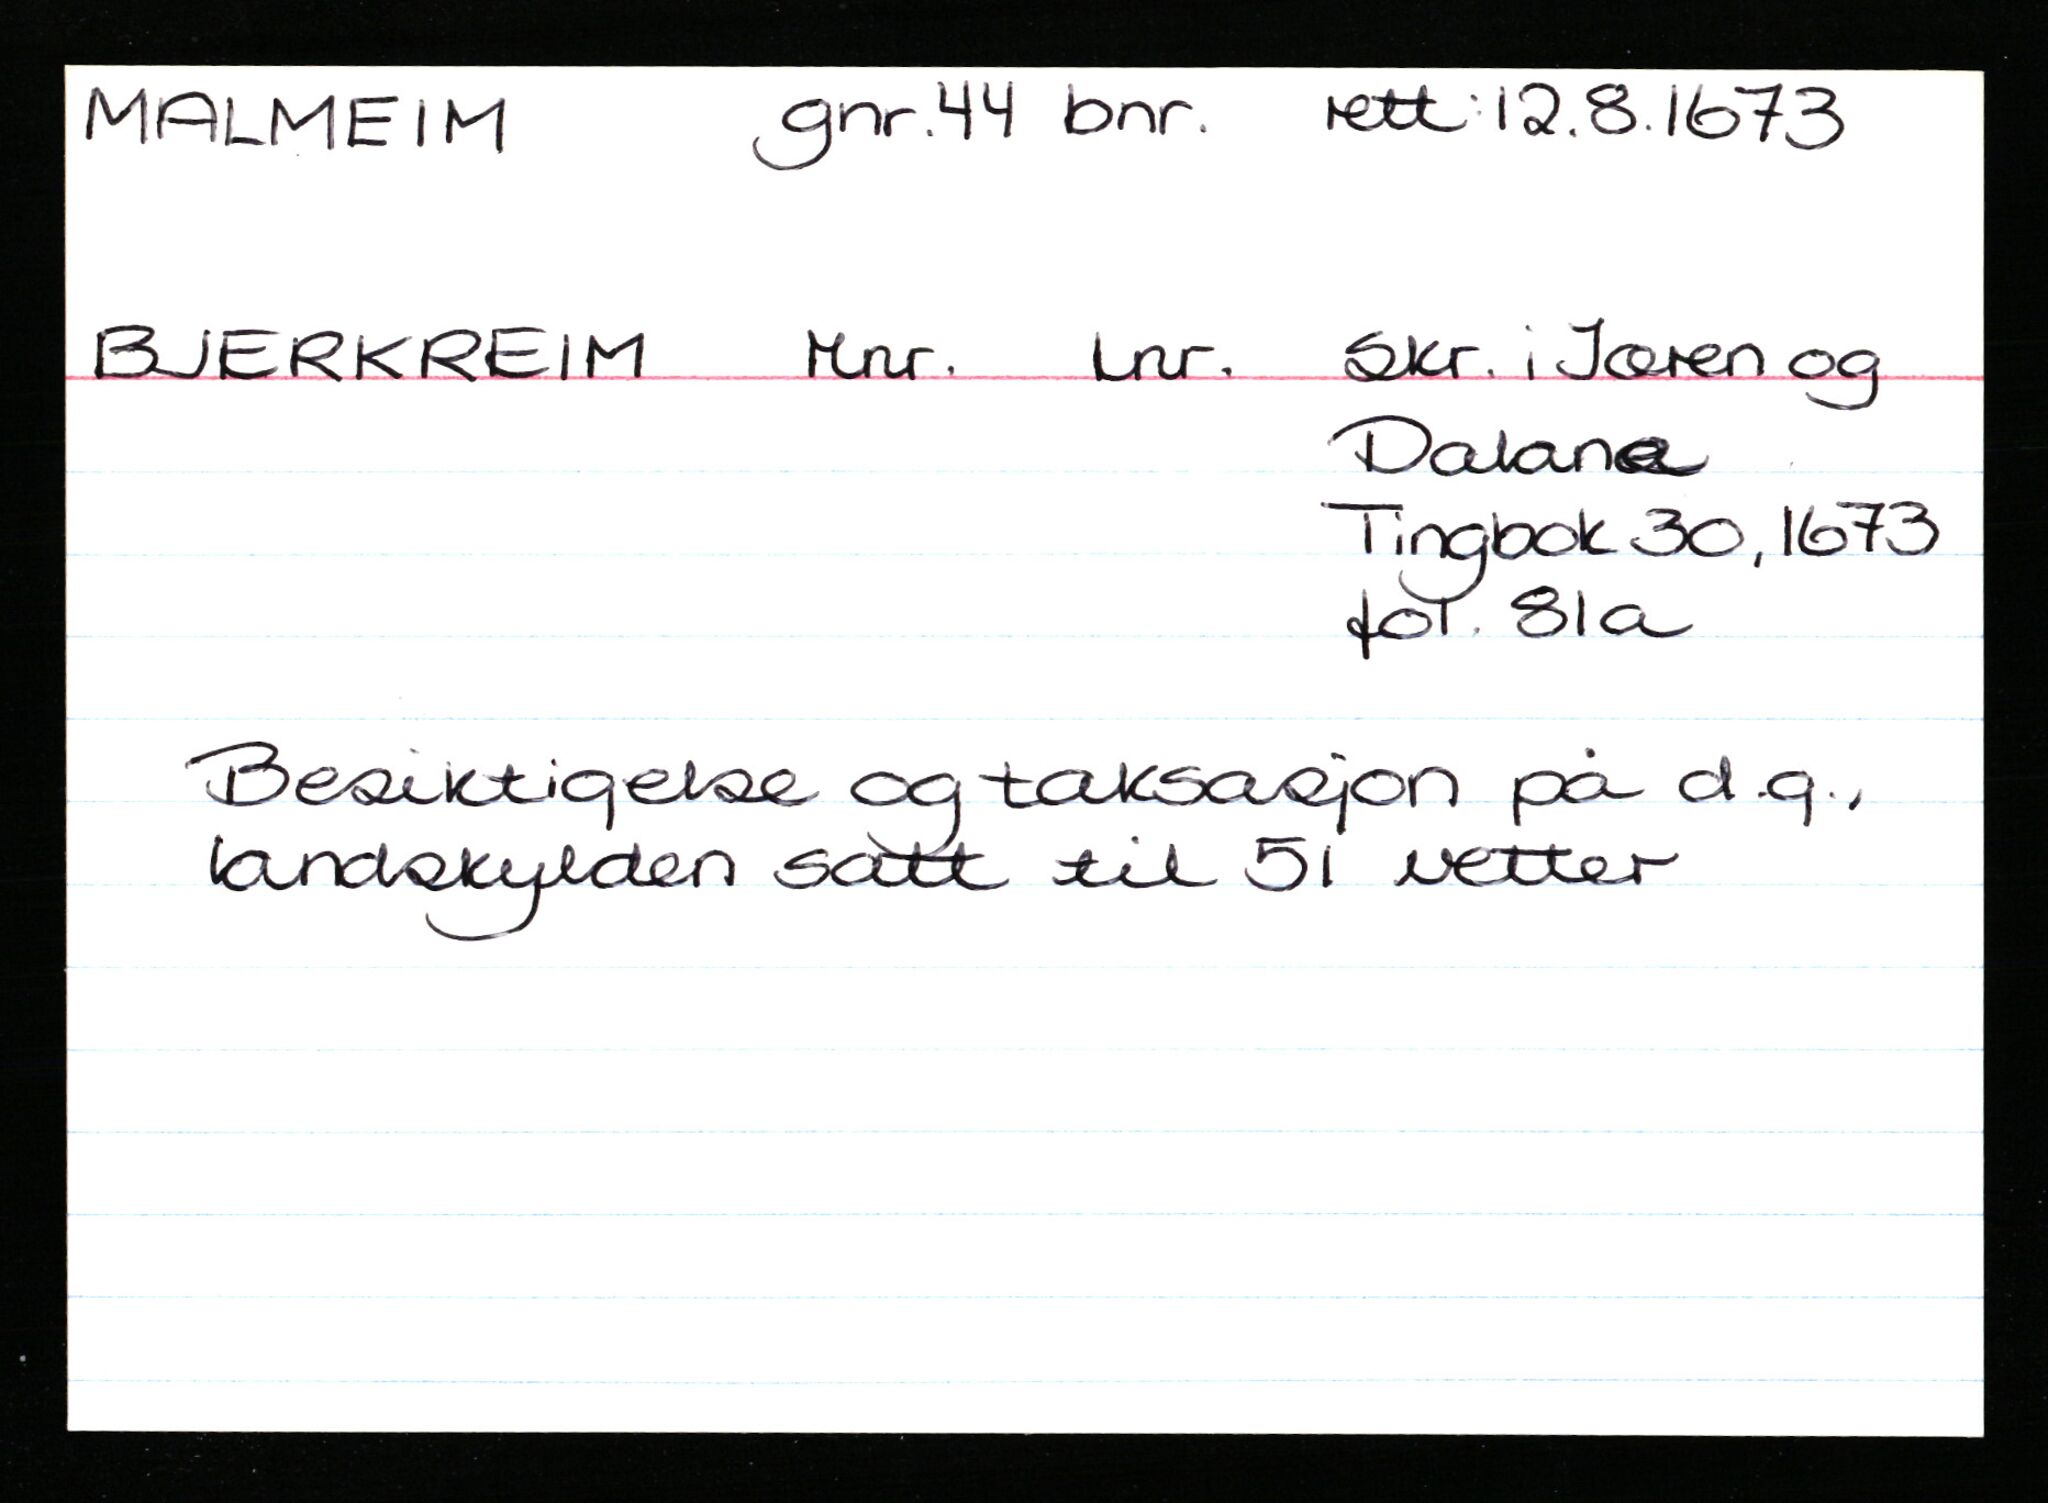 MALMEIM gnr. 44 bnr. rett: 12.8.1673
BJERKREIM Mnr. Lnr. Skr. i Jæren og
Dalane
Tingbok 30, 1673
fol. 81a
Besiktigelse og taksasjon på d.g.,
landskylden satt til 51 vetter